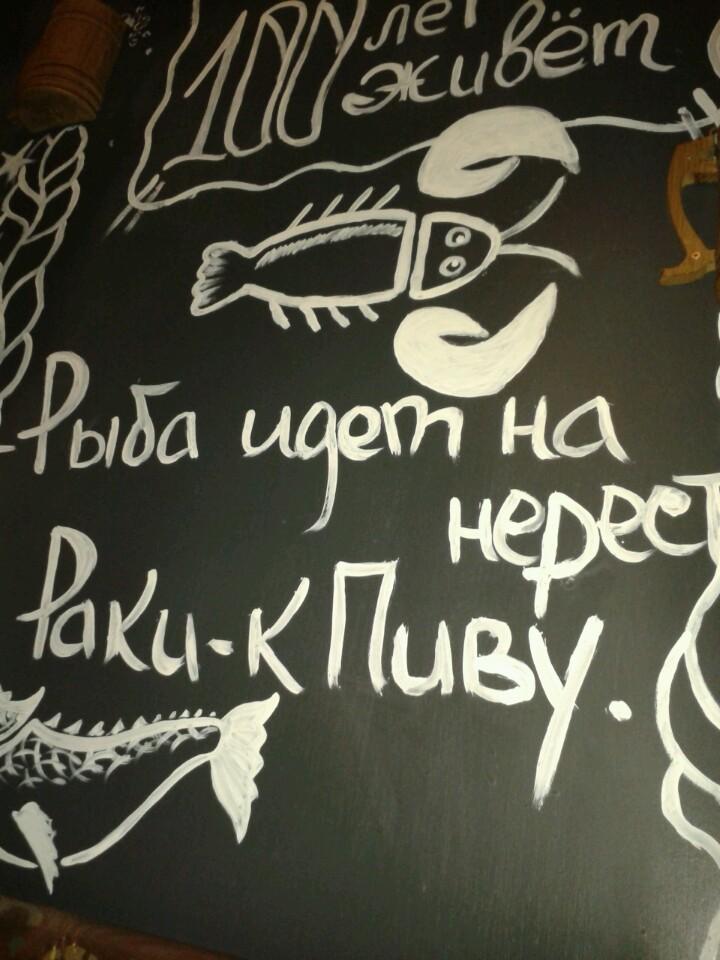 100 лет
живёт
Рыба идет на
нерест
Раки-к Пиву.